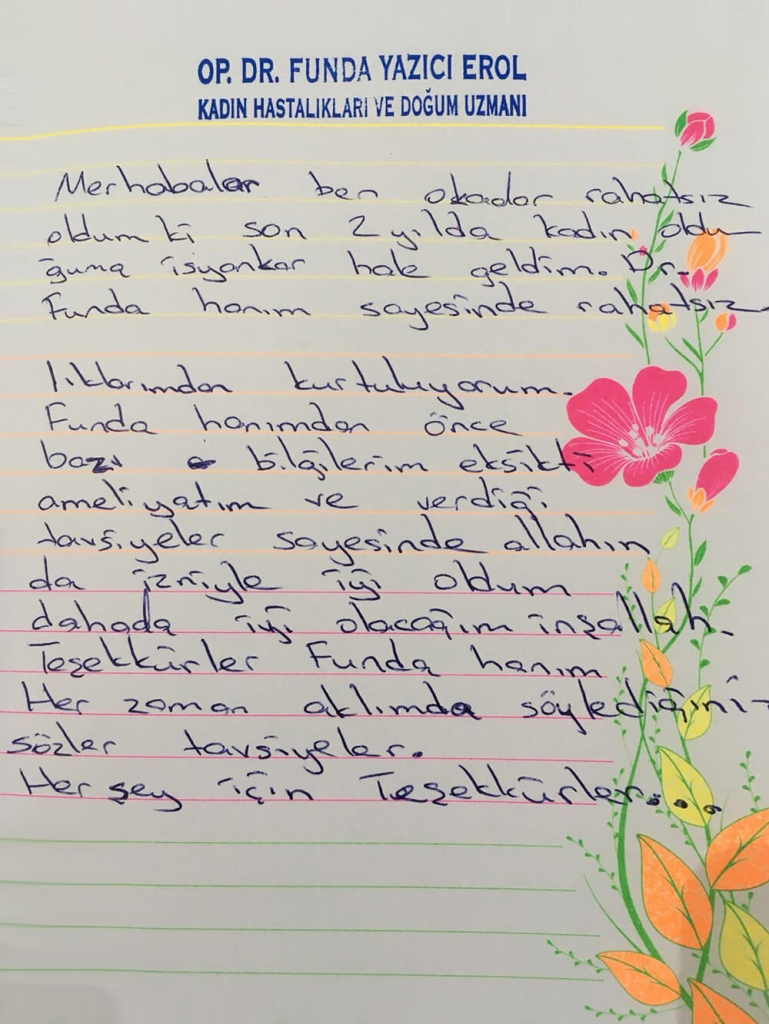 OP. DR. FUNDA YAZICI EROL
KADIN HASTALIKLARI VE DOĞUM UZMANI
Merhabalar ben okadar rahatsız
oldum ki son 2 yılda kadın oldu
ğuma isyankar hale geldim. Dr.
Funda hanım sayesinde rahatsız
lıklarımdan kurtuluyorum.
Funda hanımdan önce
bazı bilgilerim eksikti
ameliyatım ve verdiği
tavsiyeler sayesinde allahın
da izniyle iyi oldum
dahada iyi olacağım inşallah.
Teşekkürler Funda hanım
Her zaman aklımda söylediğini
sözler tavsiyeler.
Her şey için Teşekkürler...